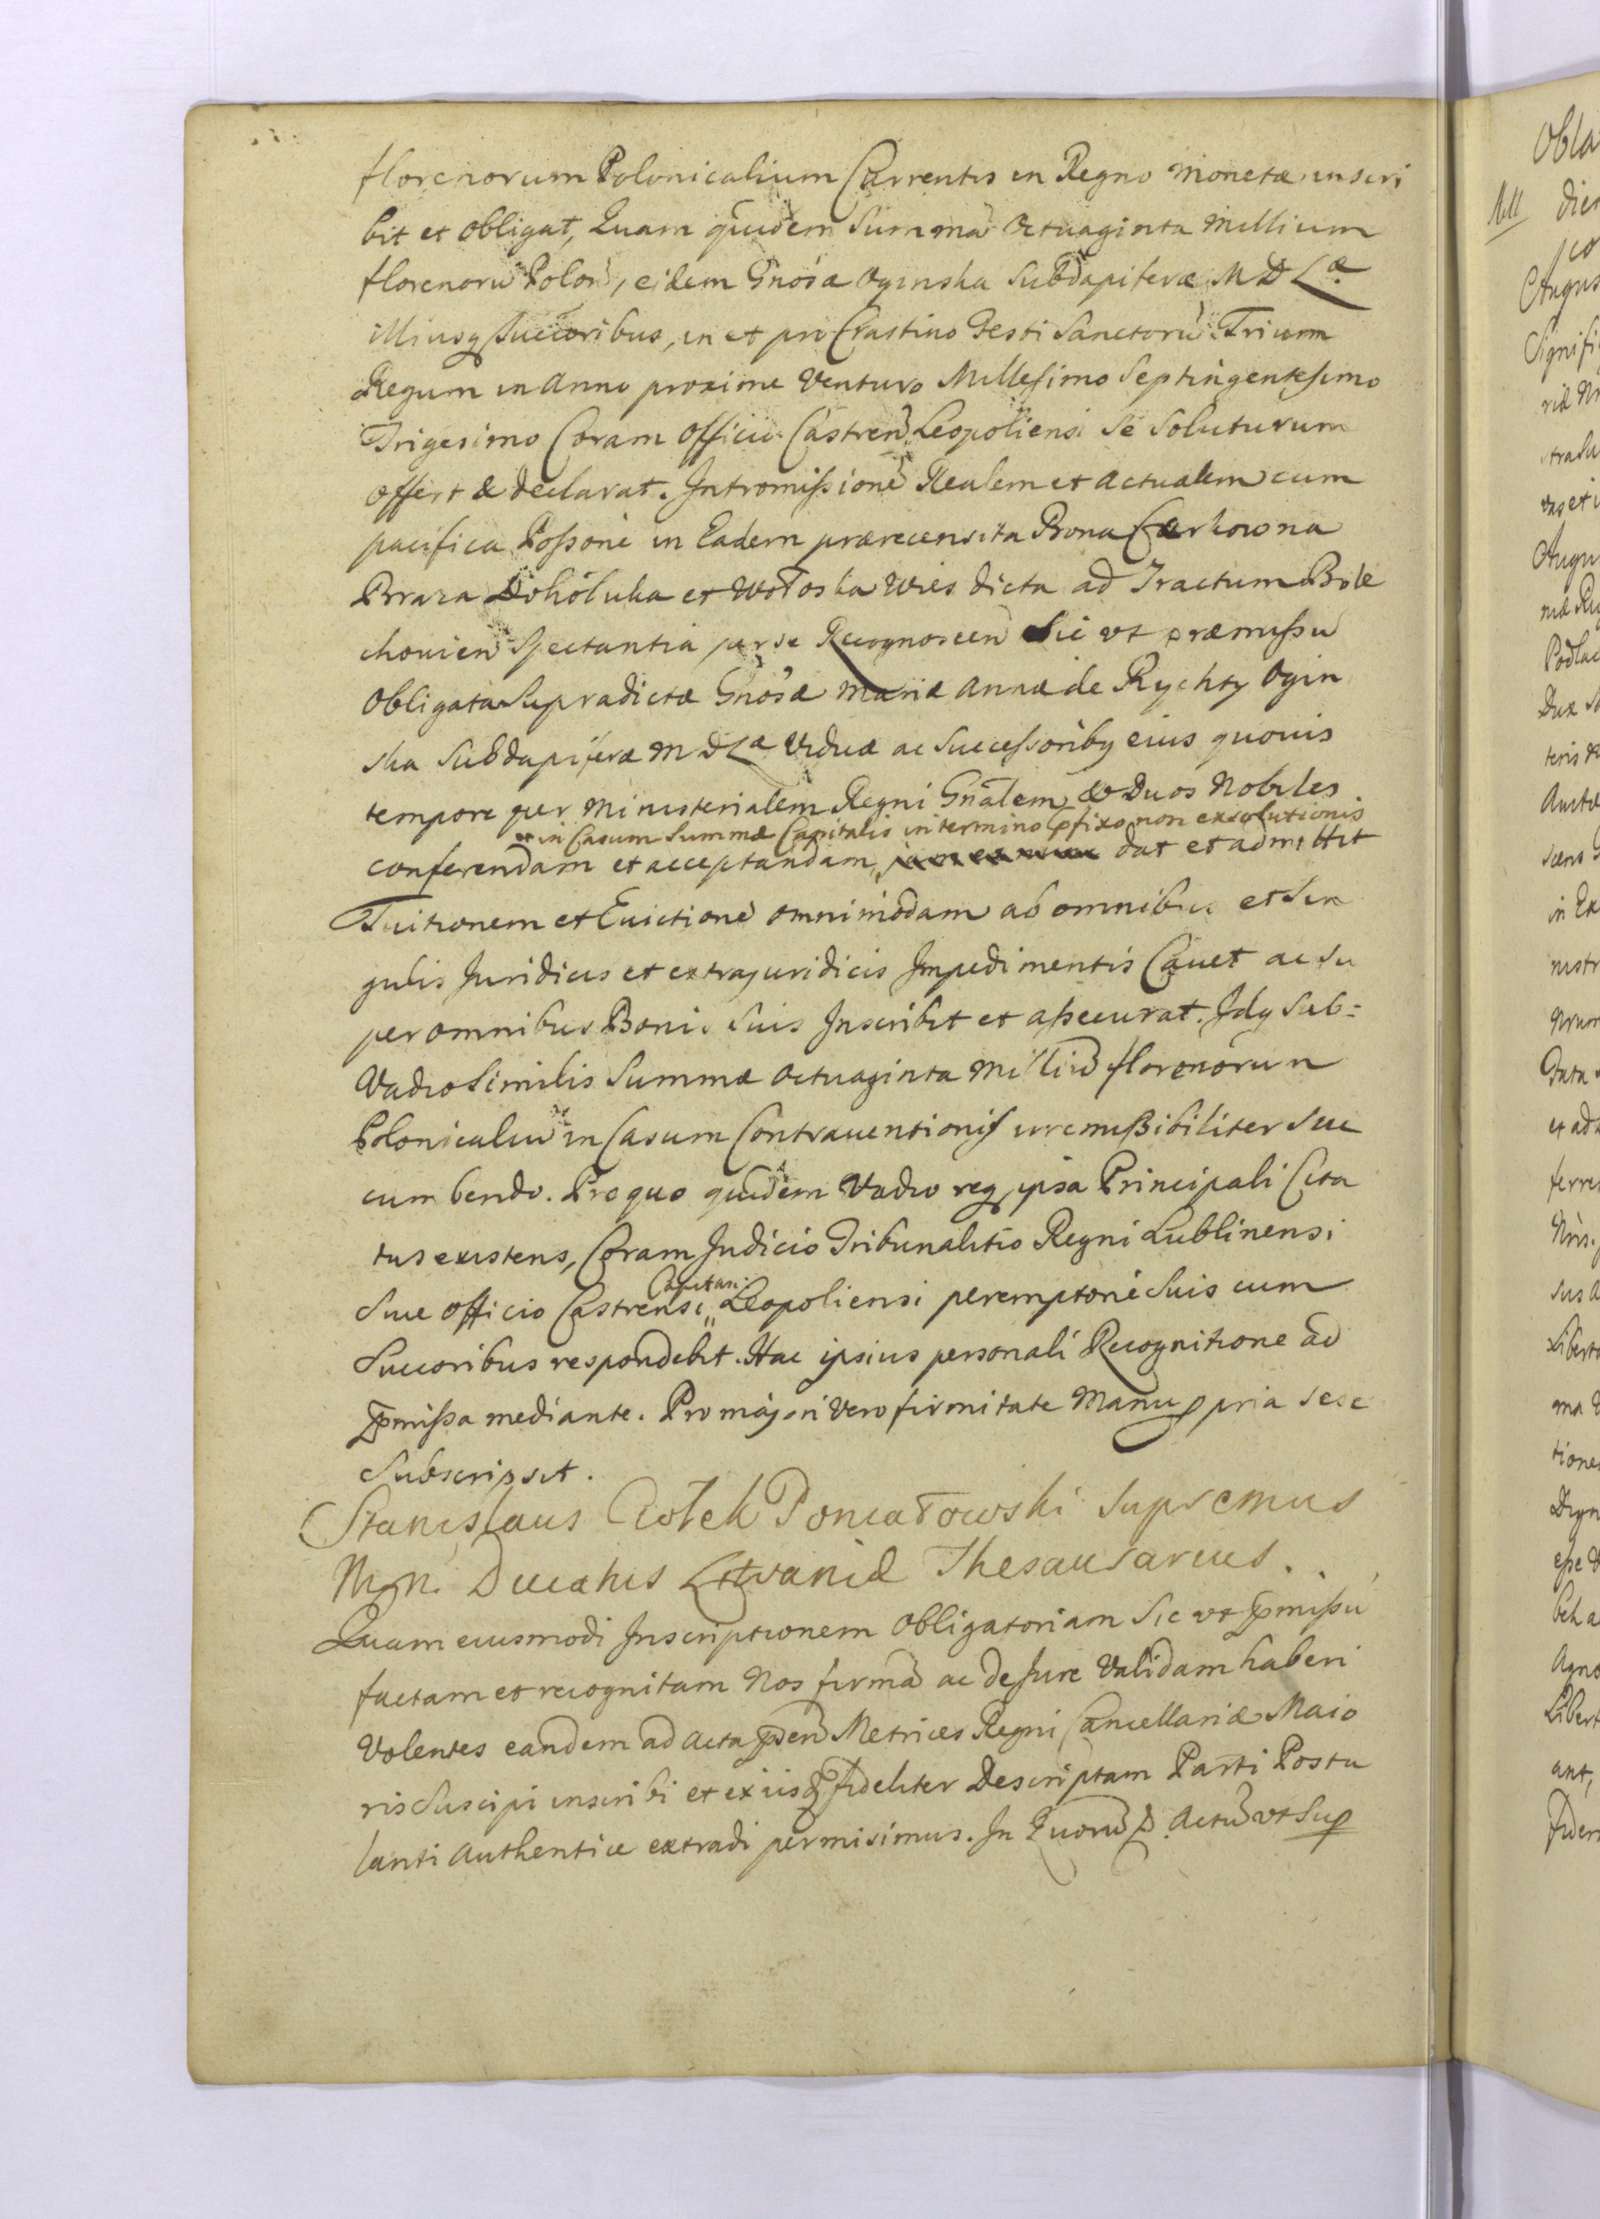 florenorum Polonicalium Currentis in Regno Monetæ inscri
bit et obligat, Quam quidem Summã Octuaginta Millium
florenorũ Polon̄, eidem Gnosæ Oginska Subdapiferæ M D Læ
illiusq Succoribus, in et pro Crastino Festi Sanctorũ Trium
Regum in Anno proxime Venturo Millesimo Septingentesimo
Trigesimo Coram Officio Castren̄ Leopoliensi Se Soluturum
offert & declarat. Intromissionẽ Realem et actualem cum
pacifica Possone in Eadem prærecensita Bona Cerkowna
Brraza Dohołuka et Wołoska Wies dicta ad Tractum Bole
chovien̄ Spectantia per se Recognoscen̄ Sic ut præmissũ
Obligata Supradictæ Gnosæ Mariæ Annæ de Rychty Ogin
ska Subdapiferæ M D Læ Viduæ ac Successoribq eius quovis
tempore per Ministerialem Regni Gnãlem & Duos Nobiles
in Casum Summæ Capitalis in termino pfixo non exsolutionis
conferendam et acceptandam, dat et admittit
Tuitionem et Evictionẽ omnimodam ab omnibus et Sin
gulis Juridicis et extrajuridicis Impedimentis Cavet ac Su
per omnibus Bonis Suis Inscribit et assecurat. Idq Sub=
Vadio Similis Summæ Octuaginta Milliũ florenorum
Polonicaliũ in Casum Contraventionis irremissibiliter Suc
cumbendo. Pro quo quidem Vadio req ipsa Principali Cita
tus existens, Coram Judicio Tribunalitio Regni Lublinensi
Capitan:
Sive Officio Castrensi Leopoliensi peremptorie Suis cum
Succoribus respondebit. Hac ipsius personali Recognitione ad
pmissa mediante. Pro majori Vero firmitate Manu ppria sese
Subscripsit.
Stanislaus Ciołek Poniatowski Supremus
Mgn. Ducatus Litvaniæ Thesaurarius.
Quam eiusmodi Inscriptionem Obligatoriam Sic ut pmissũ
factam et recognitam Nos firmã ac de Jure Validam haberi
Volentes eandem ad Acta pãsen̄ Metrices Regni Cancellariæ Maio
ris Suscipi inscribi et ex iisdẽ fideliter Descriptam Parti Postu
lanti Authentice extradi permisimus. In Quorũ &. Actũ ut Sup